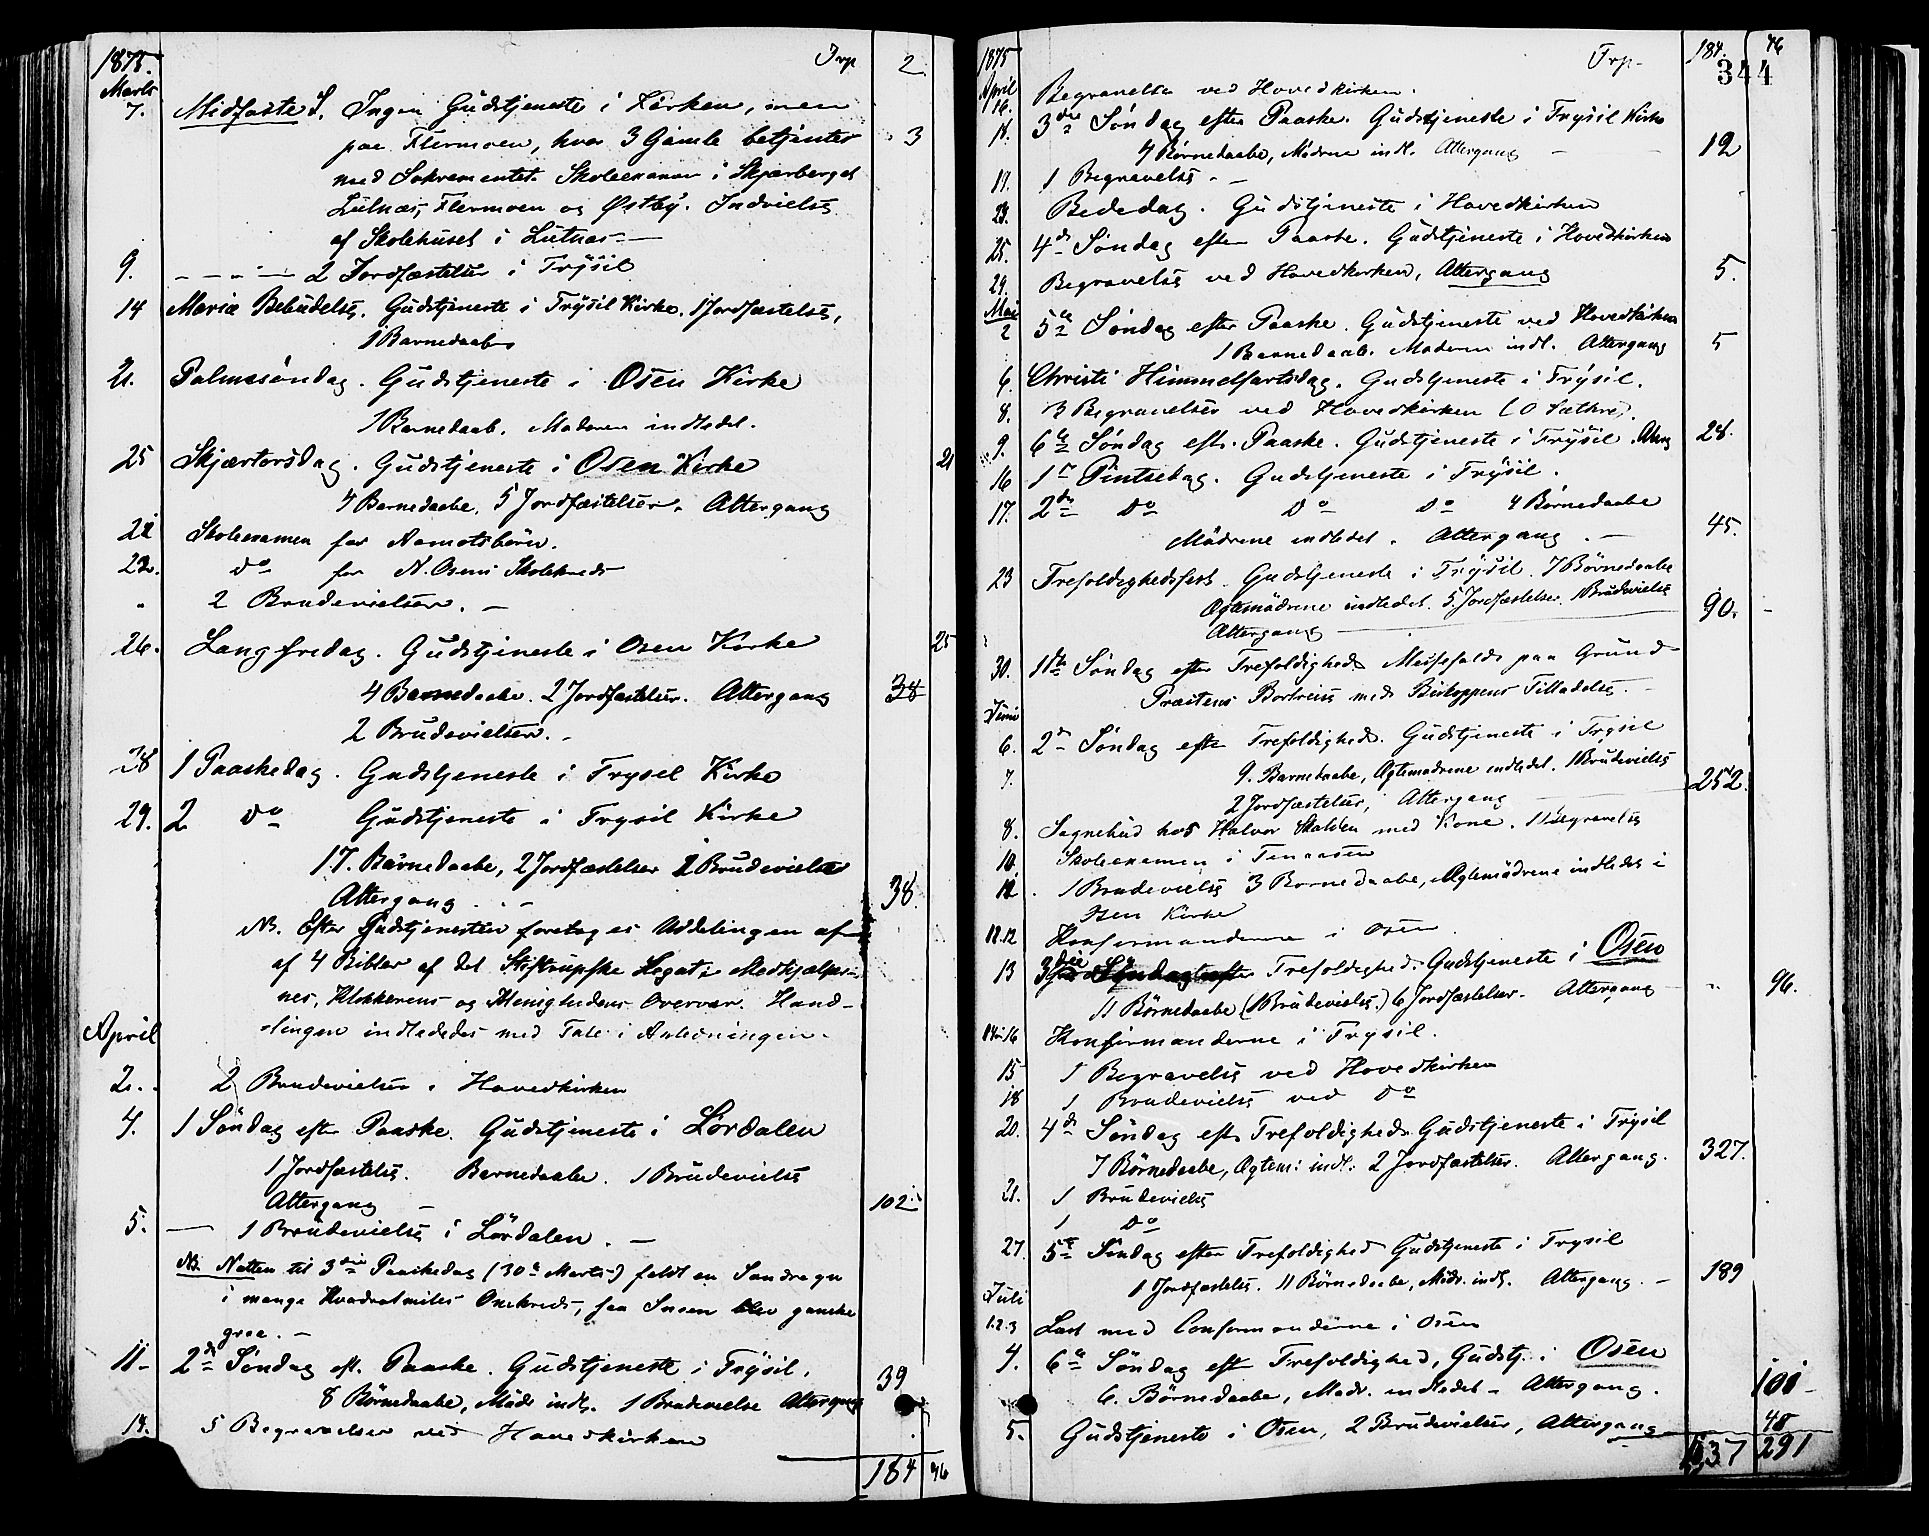 1875. Trp 2
Marts
7. Midfaste S. Ingen Gudstjeneste i Kirken, men
paa Flermoen, hvor 3 Gamle betjentes 3
med Sakramentet. Skoleexamen i Skjærberget
Lutnæs, Flermoen og Østby. Indvielse
af Skolehuset i Lutnæs. —
9. — — — 2 Jordfæstelser i Trysil
14 Mariæ Bebudelse. Gudstjeneste i Trysil Kirke. 1 Jordfæstelse,
1 Barnedaab
21. Palmesøndag. Gudstjeneste i Osen Kirke
1 Barnedaab. Moderen indledet.
25 Skjærtorsdag. Gudstjeneste i Osen Kirke 21
4 Barnedaabe. 5 Jordfæstelser. Altergang
22 Skoleexamen for Aamotsbørn.
23. do for N. Osens Skolekreds
" 2 Brudevielser. —
26. Langfredag. Gudstjeneste i Osen Kirke 25
4 Barnedaabe. 2 Jordfæstelser. Altergang 38
2 Brudevielser. —
28 1 Paaskedag. Gudstjeneste i Trysil Kirke
29. 2 do Gudstjeneste i Trysil Kirke
17. Børnedaabe, 2 Jordfæstelser 2 Brudevielser
Altergang. — 38.
NB. Efter Gudstjenesten foretoges Uddelingen af
af 4 Bibler af det Stiftrupske Legat i Medhjælper-
nes, Klokkerens og Menighedens Overvær. Hand-
lingen indlededes med Tale i Anledningen.
April
2. 2 Brudevielser i Hovedkirken
4. 1 Søndag efter Paaske. Gudstjeneste i Lørdalen
1 Jordfæstelse. Barnedaabe. 1 Brudevielse
Altergang — 102
5. — 1 Brudevielse i Lørdalen. —
NB. Natten til 3die Paaskedag (30te Marts) faldt en Sandregn
i mange Kvadratmiles Omkreds, saa Sneen blev ganske
graa. —
11 — 2den Søndag eft. Paaske. Gudstjeneste i Trysil.
8 Børnedaabe, Mødr. indl. 1 Brudevielse Altergang 39
14. 5 Begravelser ved Hovedkirken
184 46
1875 Trp. 184. 46
344
April
16. Begravelse ved Hovedkirken.
18. 3die Søndag efter Paaske. Gudstjeneste i Trysil Kirke
4 Børnedaabe, Mødrene indl. Altergang — 12
19. 1 Begravelse. —
23. Bededag. Gudstjeneste i Hovedkirken
25. 4de Søndag efter Paaske. Gudstjeneste i Hovedkirken
29. Begravelse ved Hovedkirken, Altergang 5.
Mai
2 5te Søndag efter Paaske. Gudstjeneste ved Hovedkirken
1 Barnedaab. Moderen indl. Altergang 5
6. Christi Himmelfartsdag. Gudstjeneste i Trysil.
8. 3 Begravelser ved Hovedkirken
9. 6te Søndag eft. Paaske. Gudstjeneste i Trysil. 28.
16 1ste Pintsedag. Gudstjeneste i Trysil.
17. 2den do do do 4 Børnedaabe
Mødrene indledet. Altergang. — 45.
23 Trefoldighedsfest. Gudstjeneste i Trysil. 7 Børnedaabe
Ægtemødrene indledet. 5 Jordfæstelser. 1 Brudevielse
Altergang — 90.
30. 1ste Søndag efter Trefoldighed. Messefald paa Grund
Præstens Bortreise med Biskoppens Tilladelse. —
Juni
6. 2den Søndag efter Trefoldighed. Gudstjeneste i Trysil
7. 9. Barnedaabe, Ægtemødrene indledet. 1 Brudevielse
2 Jordfæstelser, Altergang — 252.
8. Sognebud hos Halvor med Kone. 1 Begravelse
10. Skoleexamen i Tenaasen
12. 1 Brudevielse 3 Barnedaabe, Ægtemødrene indledet i
Osen Kirke
Konfirmanderne i Osen
13 3die Søndag efter Trefoldighed. Gudstjeneste i Osen
11 Børnedaabe (1 Brudevielse.) 6 Jordfæstelser. Altergang — 96.
14–16 Konfirmanderne i Trysil.
15 1 Begravelse ved Hovedkirken
18 1 Brudevielse ved do
20. 4de Søndag eft. Trefoldighed. Gudstjeneste i Trysil
7 Børnedaabe, Ægtem: indl: 2 Jordfæstelser. Altergang. 327.
21. 1 Brudevielse
1 do
27. 5te Søndag efter Trefoldighed Gudstjeneste i Trysil
1 Jordfæstelse. 11 Børnedaabe, Mødr. indl. Altergang. — 189
Juli
1.2.3 Læst med Conformanderne i Osen
4. 6te Søndag eft Trefoldighed, Gudstj. i Osen
6. Børnedaabe, Mødr. indledet — Altergang. 101 —
5. Gudstjeneste i Osen, 2 Brudevielser, Altergang 48
291